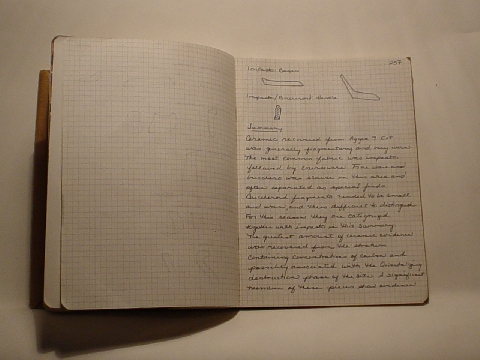 257
Impasto/Bucceroid Handle
Summary
Ceramic recovered from Agger 3 Cut
was generally fragmentary and very worn.
The most common fabric was impasto
followed by coarseware. Fine ware and
bucchero was scarce in this area and
often separated as special finds.
Bucceroid fragments tended to be small
and worn, and thus difficult to distinguish.
For this reason they are categorized
together with impasto in this summary.
The greatest amount of ceramic evidence
was recovered from the stratum
containing concentrations of carbon and
possibly associated with the
destruction phase of the site. A significant
of these pieces show evidence